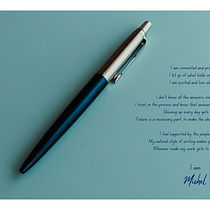 I am connected and pr
I let go of what holds m
I am excited and love wh
I don't know all the answers, an
I trust in the process and know that answer
Showing up every day gets
Failure is a necessary part, to make the ide
I feel supported by the people
My natural style of writing makes p
Whoever reads my work gets to
I am
Michel